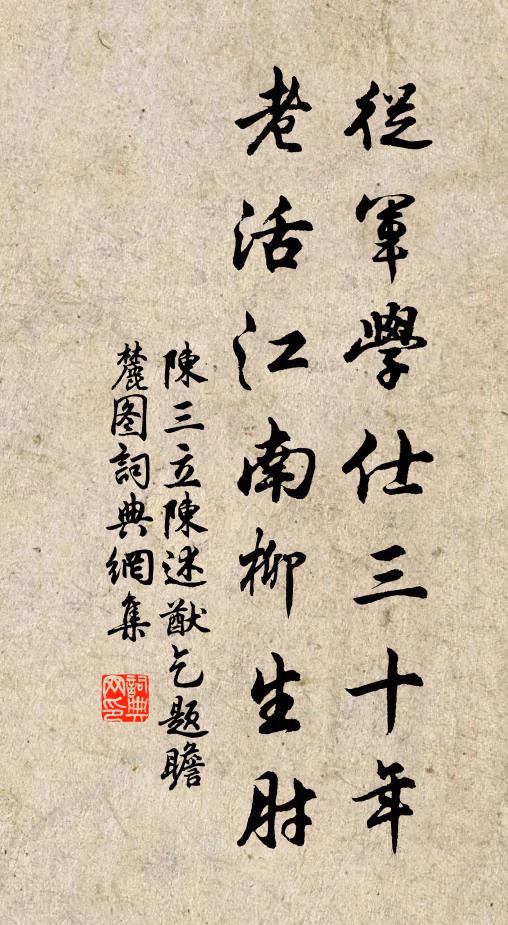 從軍學仕三十年
老活江南柳生肘
陳三立陳述猷乞題瞻
麓图詞典網集
詞典網印